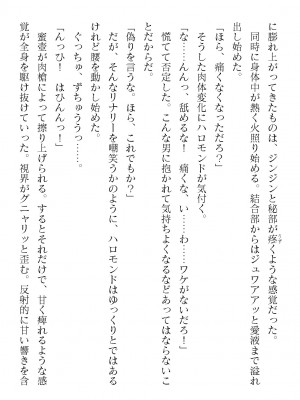 に膨れ上がってきたものは、ジンジンと秘部が疼くような感覚だった。
同時に身体中が熱く火照り始める。結合部からはジュワアアッと愛液まで溢れ
出し始めた。
「ほら、痛くなくなっただろ？」
そうした肉体変化にハロモンドが気付く。
「な……んんっ、舐めるな！　痛くな、い……わ……ワケがないだろ！」
慌てて否定した。こんな男に抱かれて気持ちよくなるなどあってはならないこ
とだからだ。
「偽りを言うな。ほら、これでもか？」
だが、そんなリナリーを嘲笑うかのように、ハロモンドはゆっくりとではある
けれど腰を動かし始めた。
ぐっちゅ、ずちゅううっ……。
「んっひ！　はひんんっ！」
蜜壺が肉槍によって擦り上げられる。するとそれだけで、甘く痺れるような感
覚が全身を駆け抜けていった。視界がグニャリッと歪む。反射的に甘い響きを含